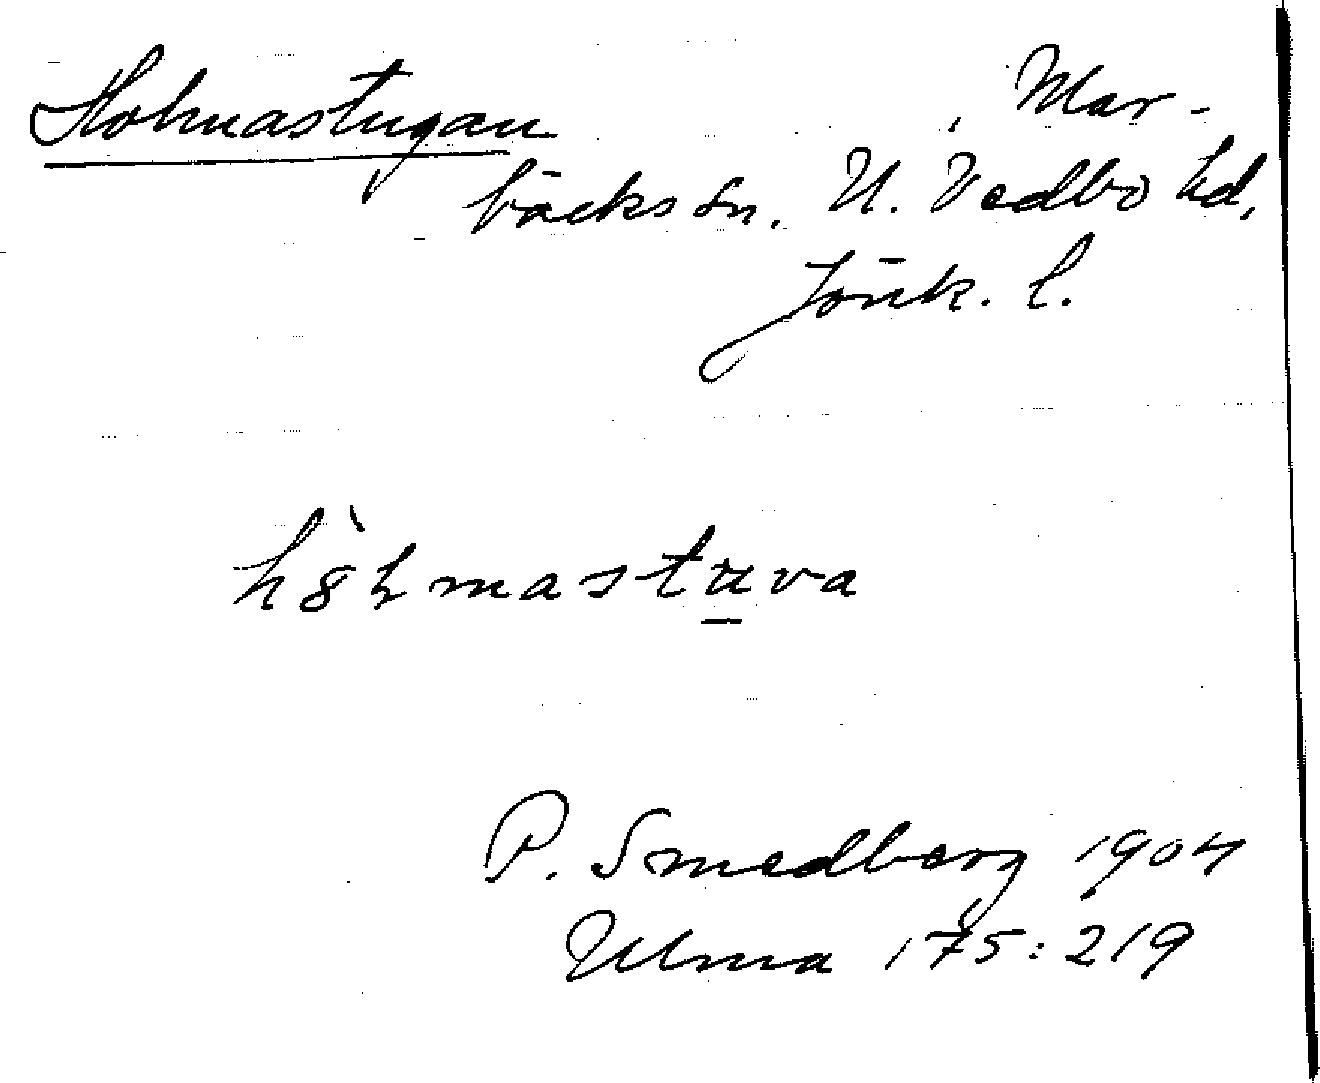 Holmastugan , Mar-
bäcks sn. N. Vedbo hd,
Jönk. l.
hö̀lmastuva
P. Smedberg 1904
Ulma 175:219